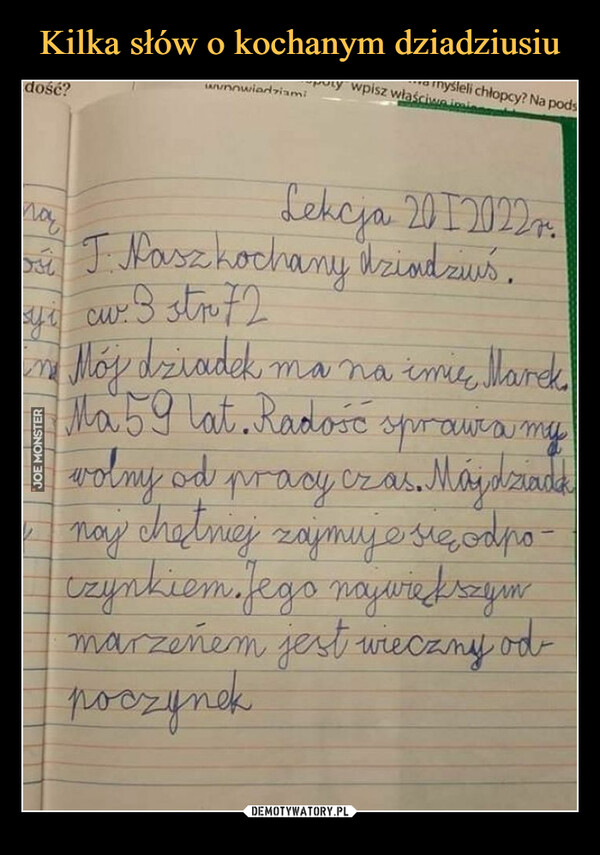 Kilka słów o kochanym dziadziusiu
dość?
wypowiedziami
wpisz właściwe
myśleli chłopcy? Na pods
ną
ości
Lekcja 20 I 2022r.
T: Nasz kochany dziadziuś.
ćw. 3 str 72
Mój dziadek ma na imię Marek.
Ma 59 lat. Radość sprawia my
wolny od pracy czas. Mój dziadek
naj chętniej zajmuje się odpo-
czynkiem. Jego największym
marzeńem jest wieczny od-
poczynek
JOE MONSTER
DEMOTYWATORY.PL